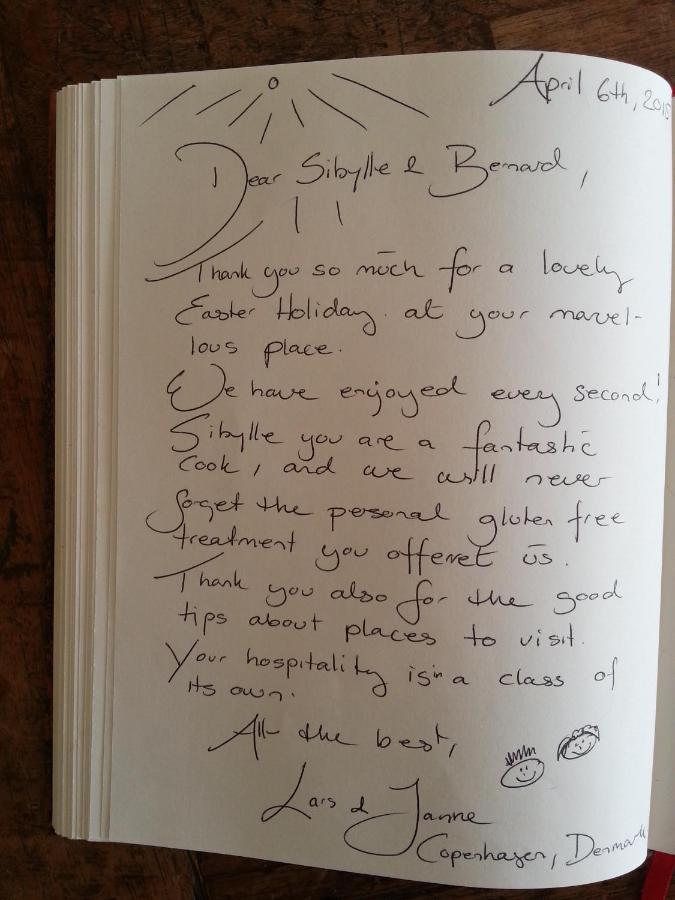 April 6th, 2015
Dear Sibylle & Bernard,
Thank you so much for a lovely
Easter Holiday. at your marvel-
lous place.
We have enjoyed every second!
Sibylle you are a fantastic
cook, and we will never
forget the personal gluten free
treatment you offeret us.
Thank you also for the good
tips about places to visit.
Your hospitality is in a class of
its own.
All the best,
Lars & Janne
Copenhagen, Denmark